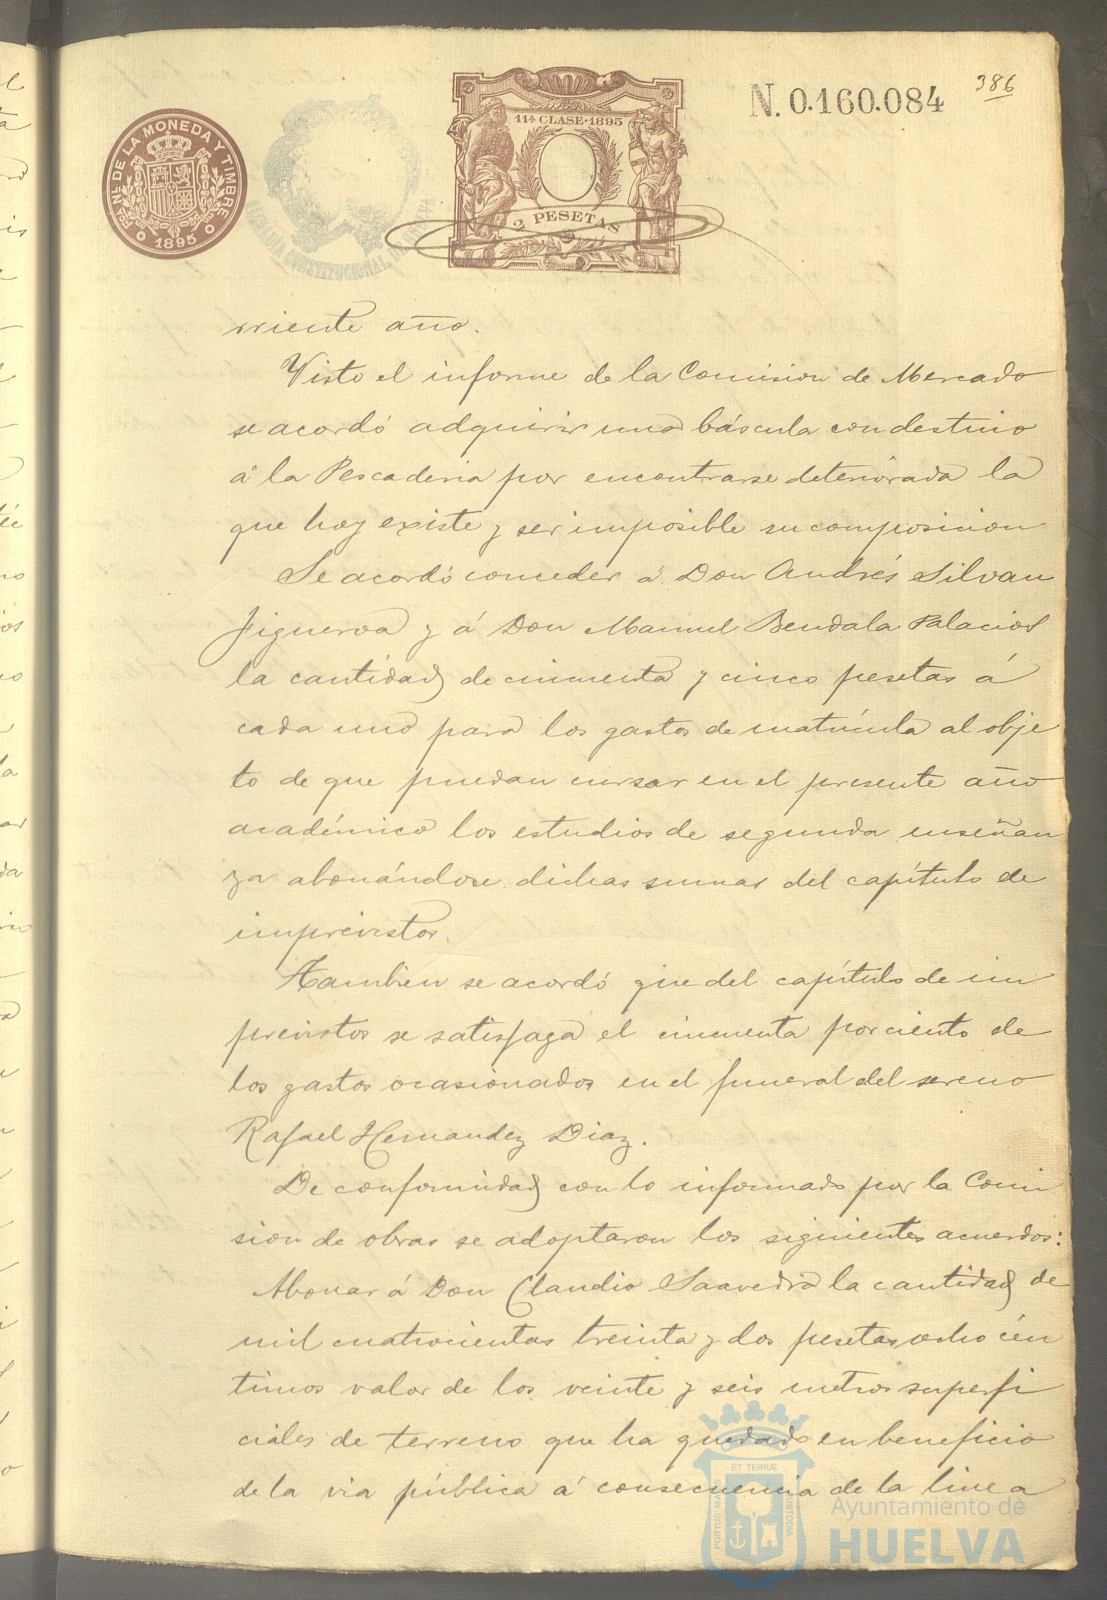 386
N. 0.160.084
FCA. NL. DE LA MONEDA Y TIMBRE
1895
11ª CLASE·1895
2 PESETAS
CONSTITUCIONAL
rriente año.
Visto el informe de la Comision de Mercado
se acordó adquirir una báscula con destino
á la Pescaderia por encontrarse deteriorada la
que hoy existe y ser imposible su composicion
Se acordó conceder á Don Andrés Silvan
Figueroa y á Don Manuel Bendala Palacios
la cantidad de cincuenta y cinco pesetas á
cada uno para los gastos de matrícula al obje
to de que puedan cursar en el presente año
académico los estudios de segunda enseñan
za abonándose dichas sumas del capítulo de
imprevistos.
Tambien se acordó que del capítulo de im
previstos se satisfaga el cincuenta por ciento de
los gastos ocasionados en el funeral del sereno
Rafael Hernandez Diaz.
De conformidad con lo informado por la Comi
sion de obras se adoptaron los siguientes acuerdos:
Abonar á Don Claudio Saavedra la cantidad de
mil cuatrocientas treinta y dos pesetas ocho cén
timos valor de los veinte y seis metros superfi
ciales de terreno que ha quedado en beneficio
de la via pública á consecuencia de la linea
PORTUS MARIS ET TERRÆ CUSTODIA
Ayuntamiento de
HUELVA